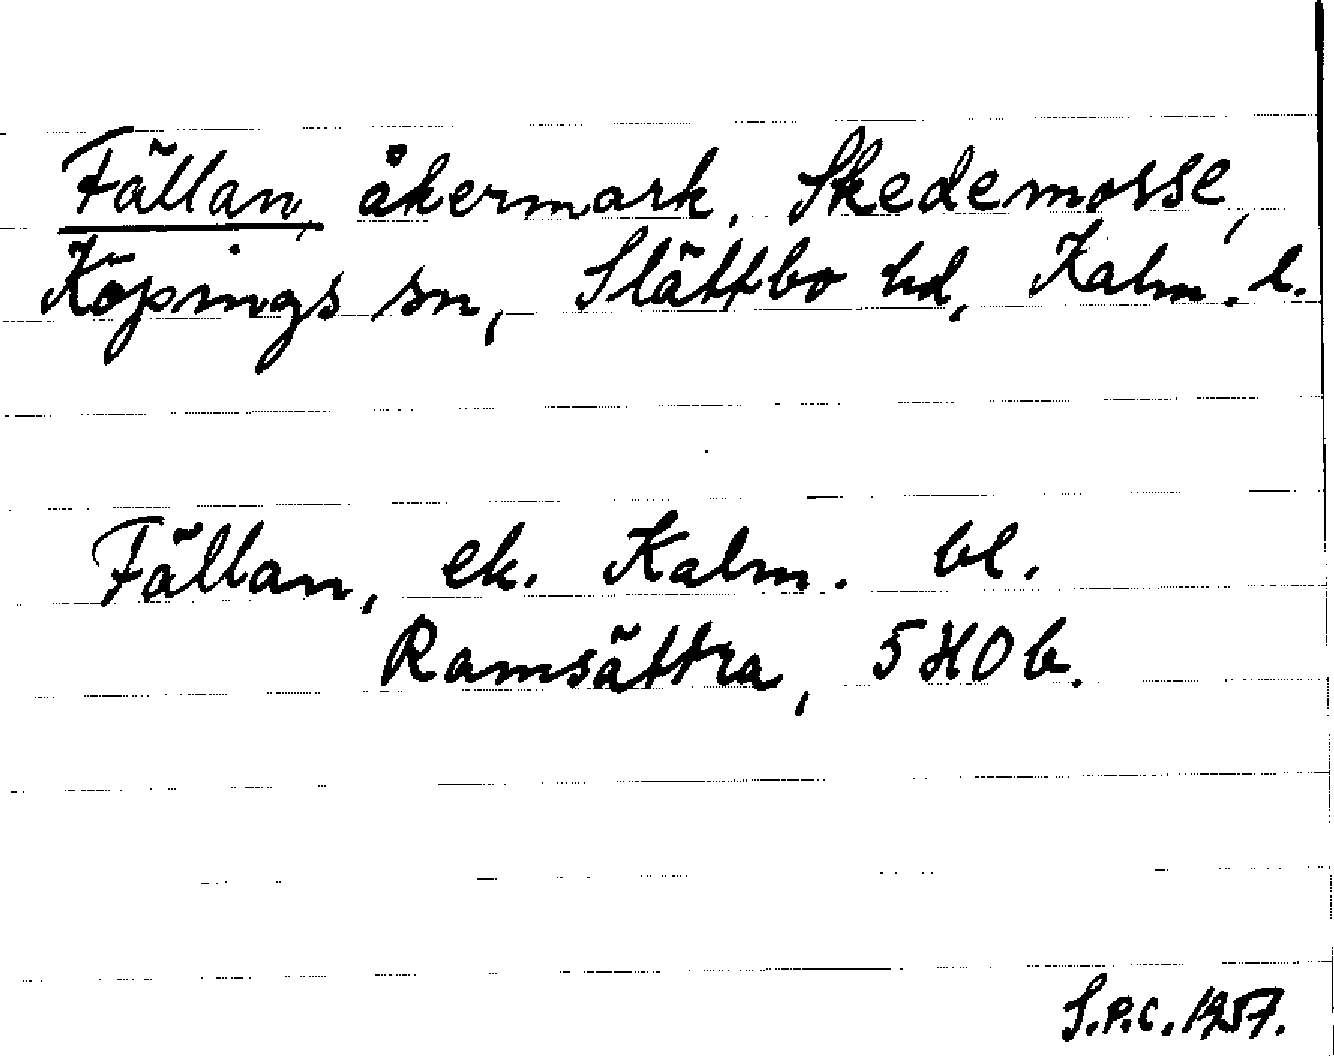 Fällan, åkermark, Skedemosse,
Köpings sn, Slättbo hd, Kalm. l.
Fällan, ek. Kalm. bl.
Ramsättra, 5H0b.
S.P.C. 1957.